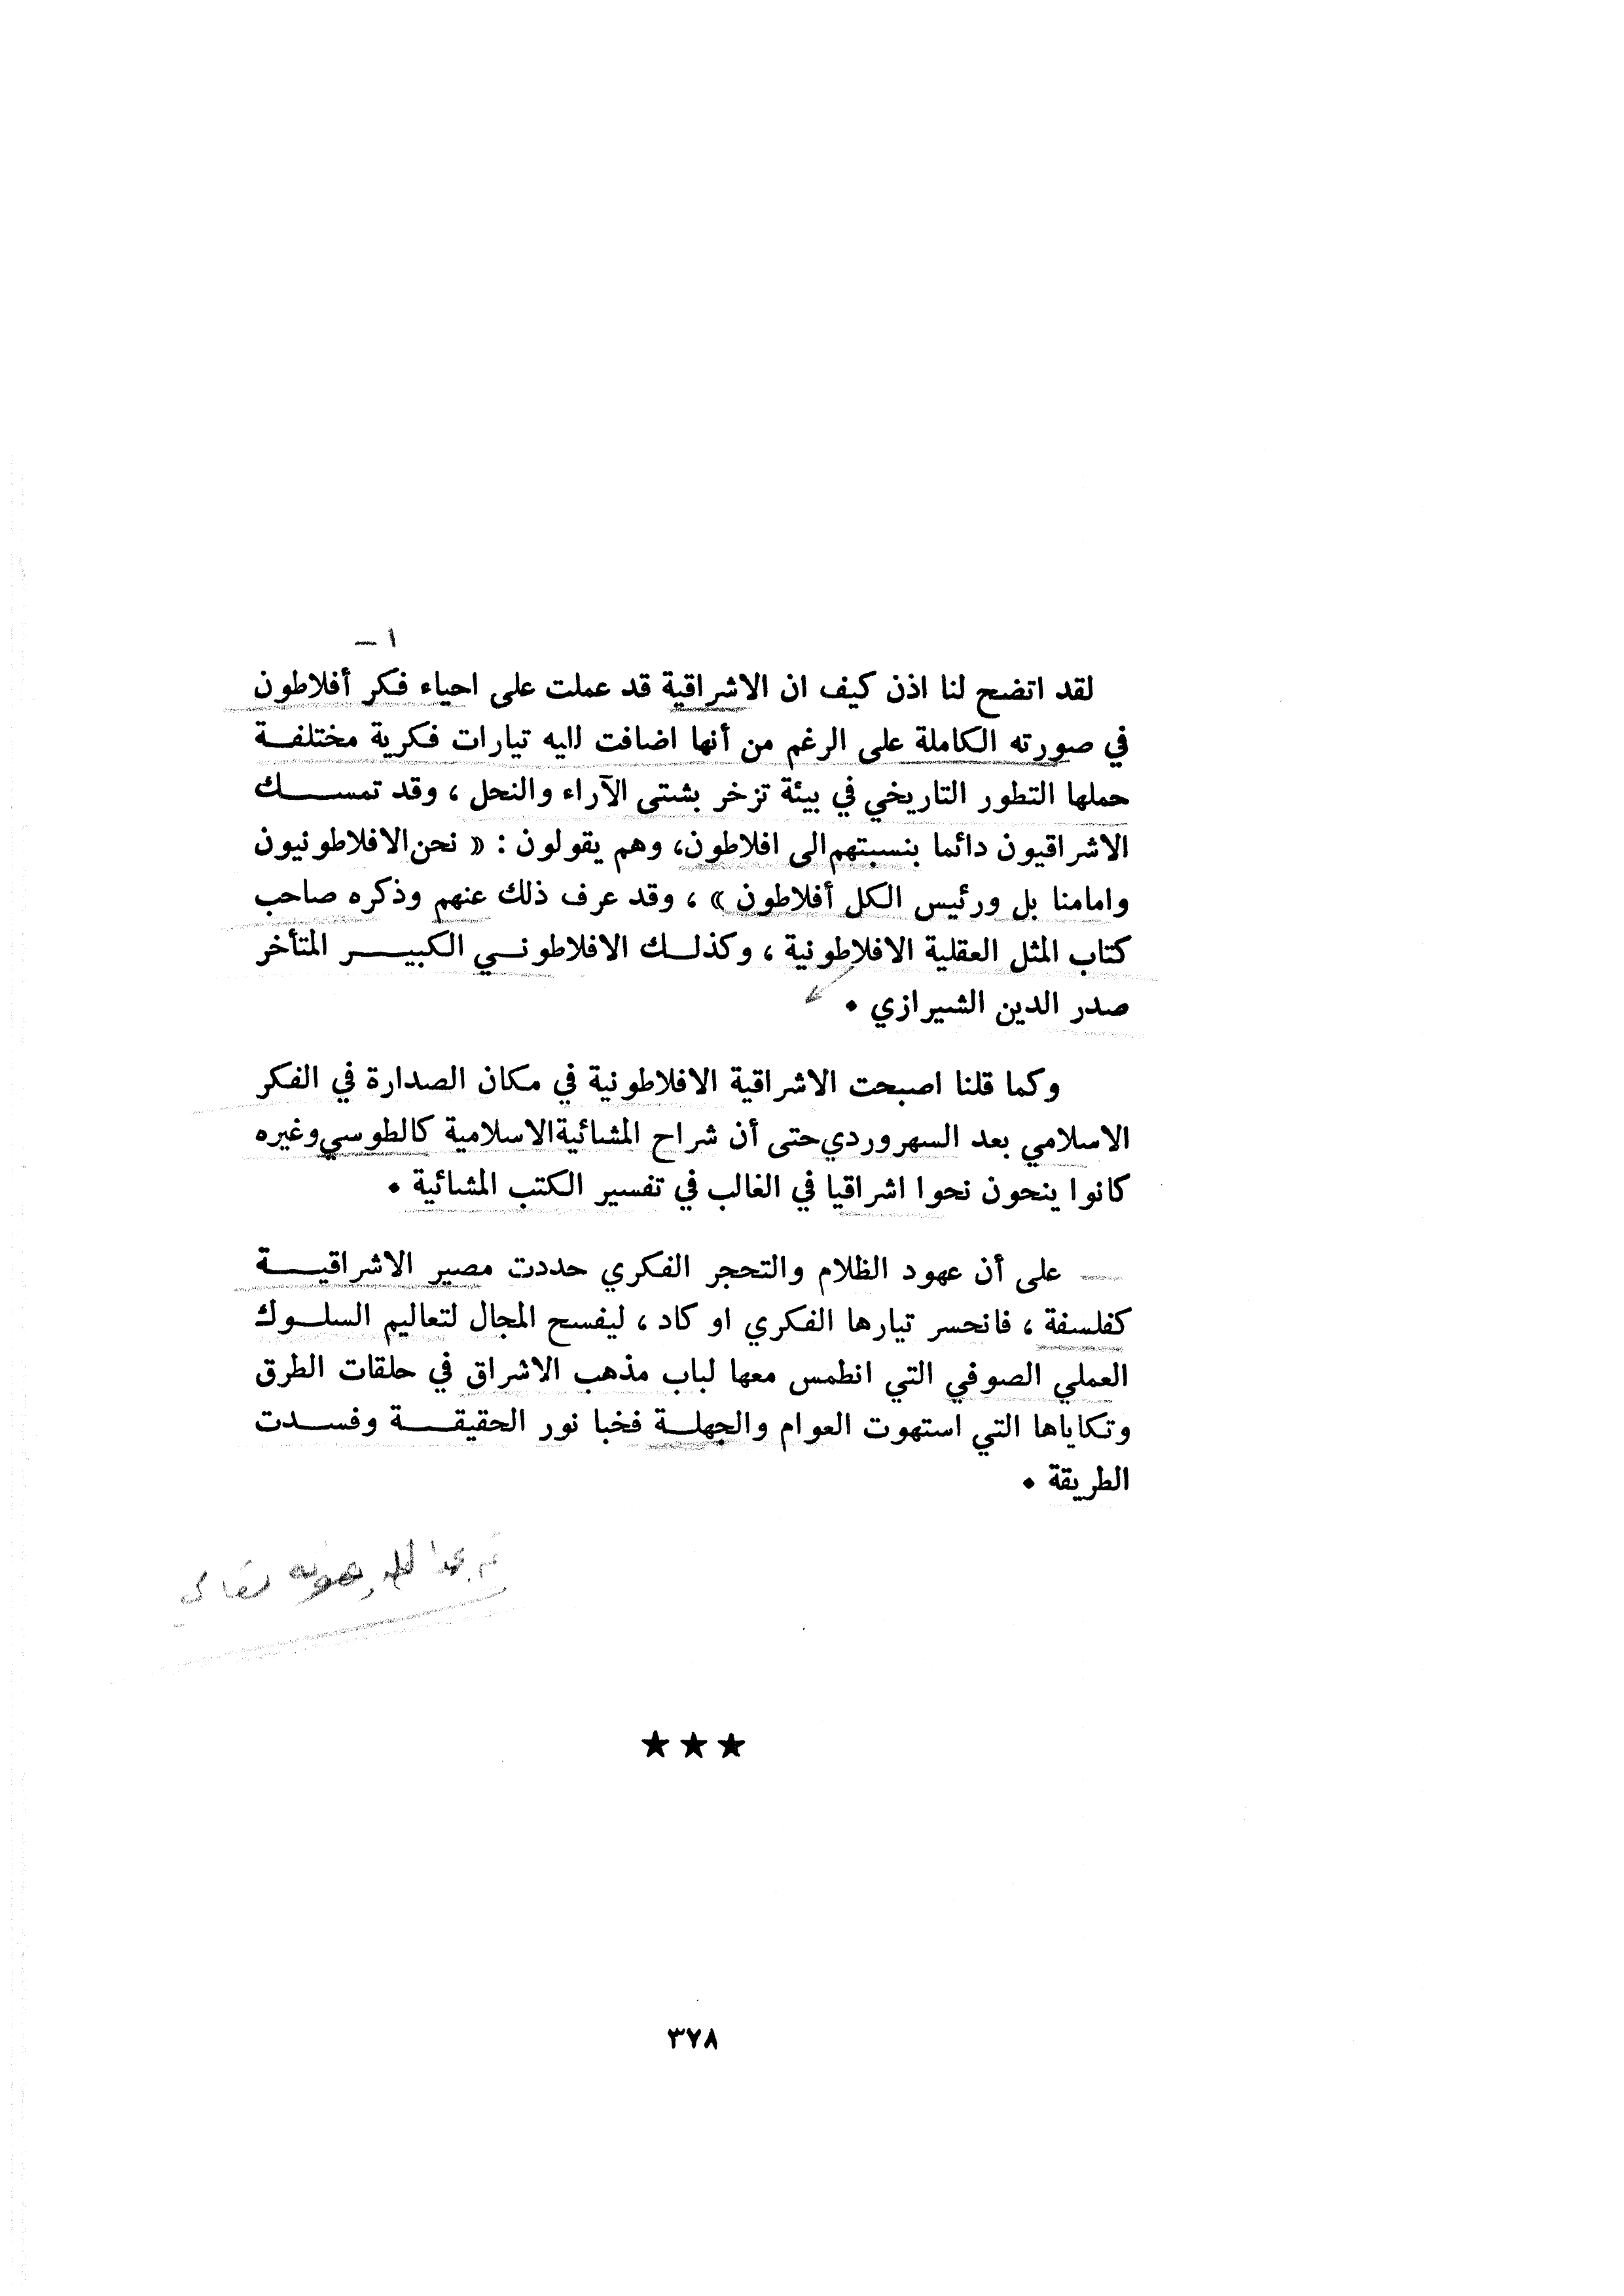 ١ —
لقد اتضح لنا اذن كيف ان الاشراقية قد عملت على احياء فكر أفلاطون
في صورته الكاملة على الرغم من أنها اضافت اليه تيارات فكرية مختلفة
حملها التطور التاريخي في بيئة تزخر بشتى الآراء والنحل ، وقد تمسك
الاشراقيون دائما بنسبتهم الى افلاطون، وهم يقولون : « نحن الافلاطونيون
وامامنا بل ورئيس الكل أفلاطون » ، وقد عرف ذلك عنهم وذكره صاحب
كتاب المثل العقلية الافلاطونية ، وكذلك الافلاطوني الكبير المتأخر
صدر الدين الشيرازي .
وكما قلنا اصبحت الاشراقية الافلاطونية في مكان الصدارة في الفكر
الاسلامي بعد السهروردي حتى أن شراح المشائية الاسلامية كالطوسي وغيره
كانوا ينحون نحوا اشراقيا في الغالب في تفسير الكتب المشائية .
— على أن عهود الظلام والتحجر الفكري حددت مصير الاشراقية
كفلسفة ، فانحسر تيارها الفكري او كاد ، ليفسح المجال لتعاليم السلوك
العملي الصوفي التي انطمس معها لباب مذهب الاشراق في حلقات الطرق
وتكاياها التي استهوت العوام والجهلة فخبا نور الحقيقة وفسدت
الطريقة .
تم بحمد الله وعونه تعالى
★★★
٣٧٨